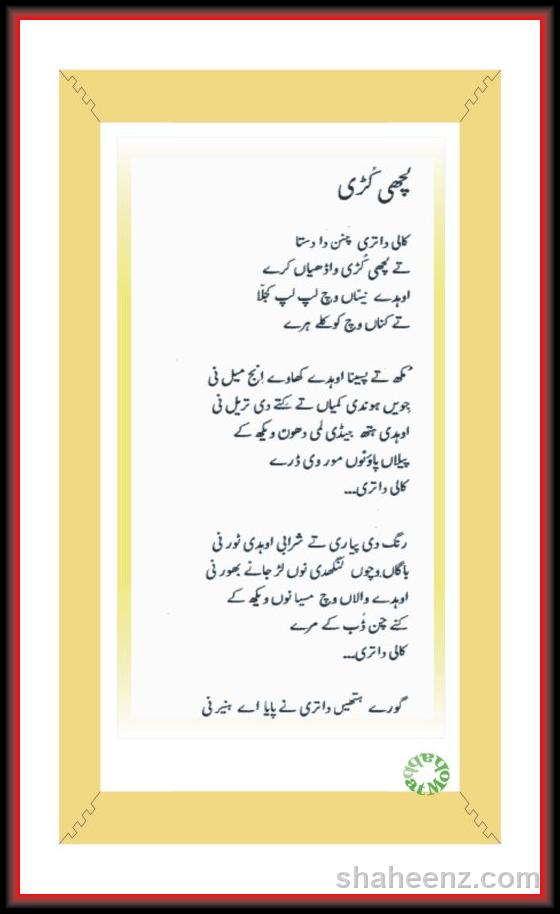 لچھی کُڑی
کالی داتری چنن دا دستا
تے لچھی کُڑی واڈھیاں کرے
اوہدے نیناں وچ لپ لپ کجلّا
تے کناں وچ کوکلے ہرے
مُکھ تے پسینا اوہدے کھاوے اِنج میل نی
جویں ہوندی کمیاں تے کتے دی تریل نی
اوہدی ہتھ جیڈی لمی دھون ویکھ کے
پیلاں پاؤنوں مور وی ڈرے
کالی داتری...
رنگ دی پیاری تے شرابی اوہدی ٹور نی
باگاں وچوں لنگھدی نوں لڑ جانے بھور نی
اوہدے والاں وچ مسیا نوں ویکھ کے
کئے چن ڈُب کے مرے
کالی داتری...
گورے ہتھیں داتری نے پایا اے ہنیر نی
Mohabbat
shaheenz.com